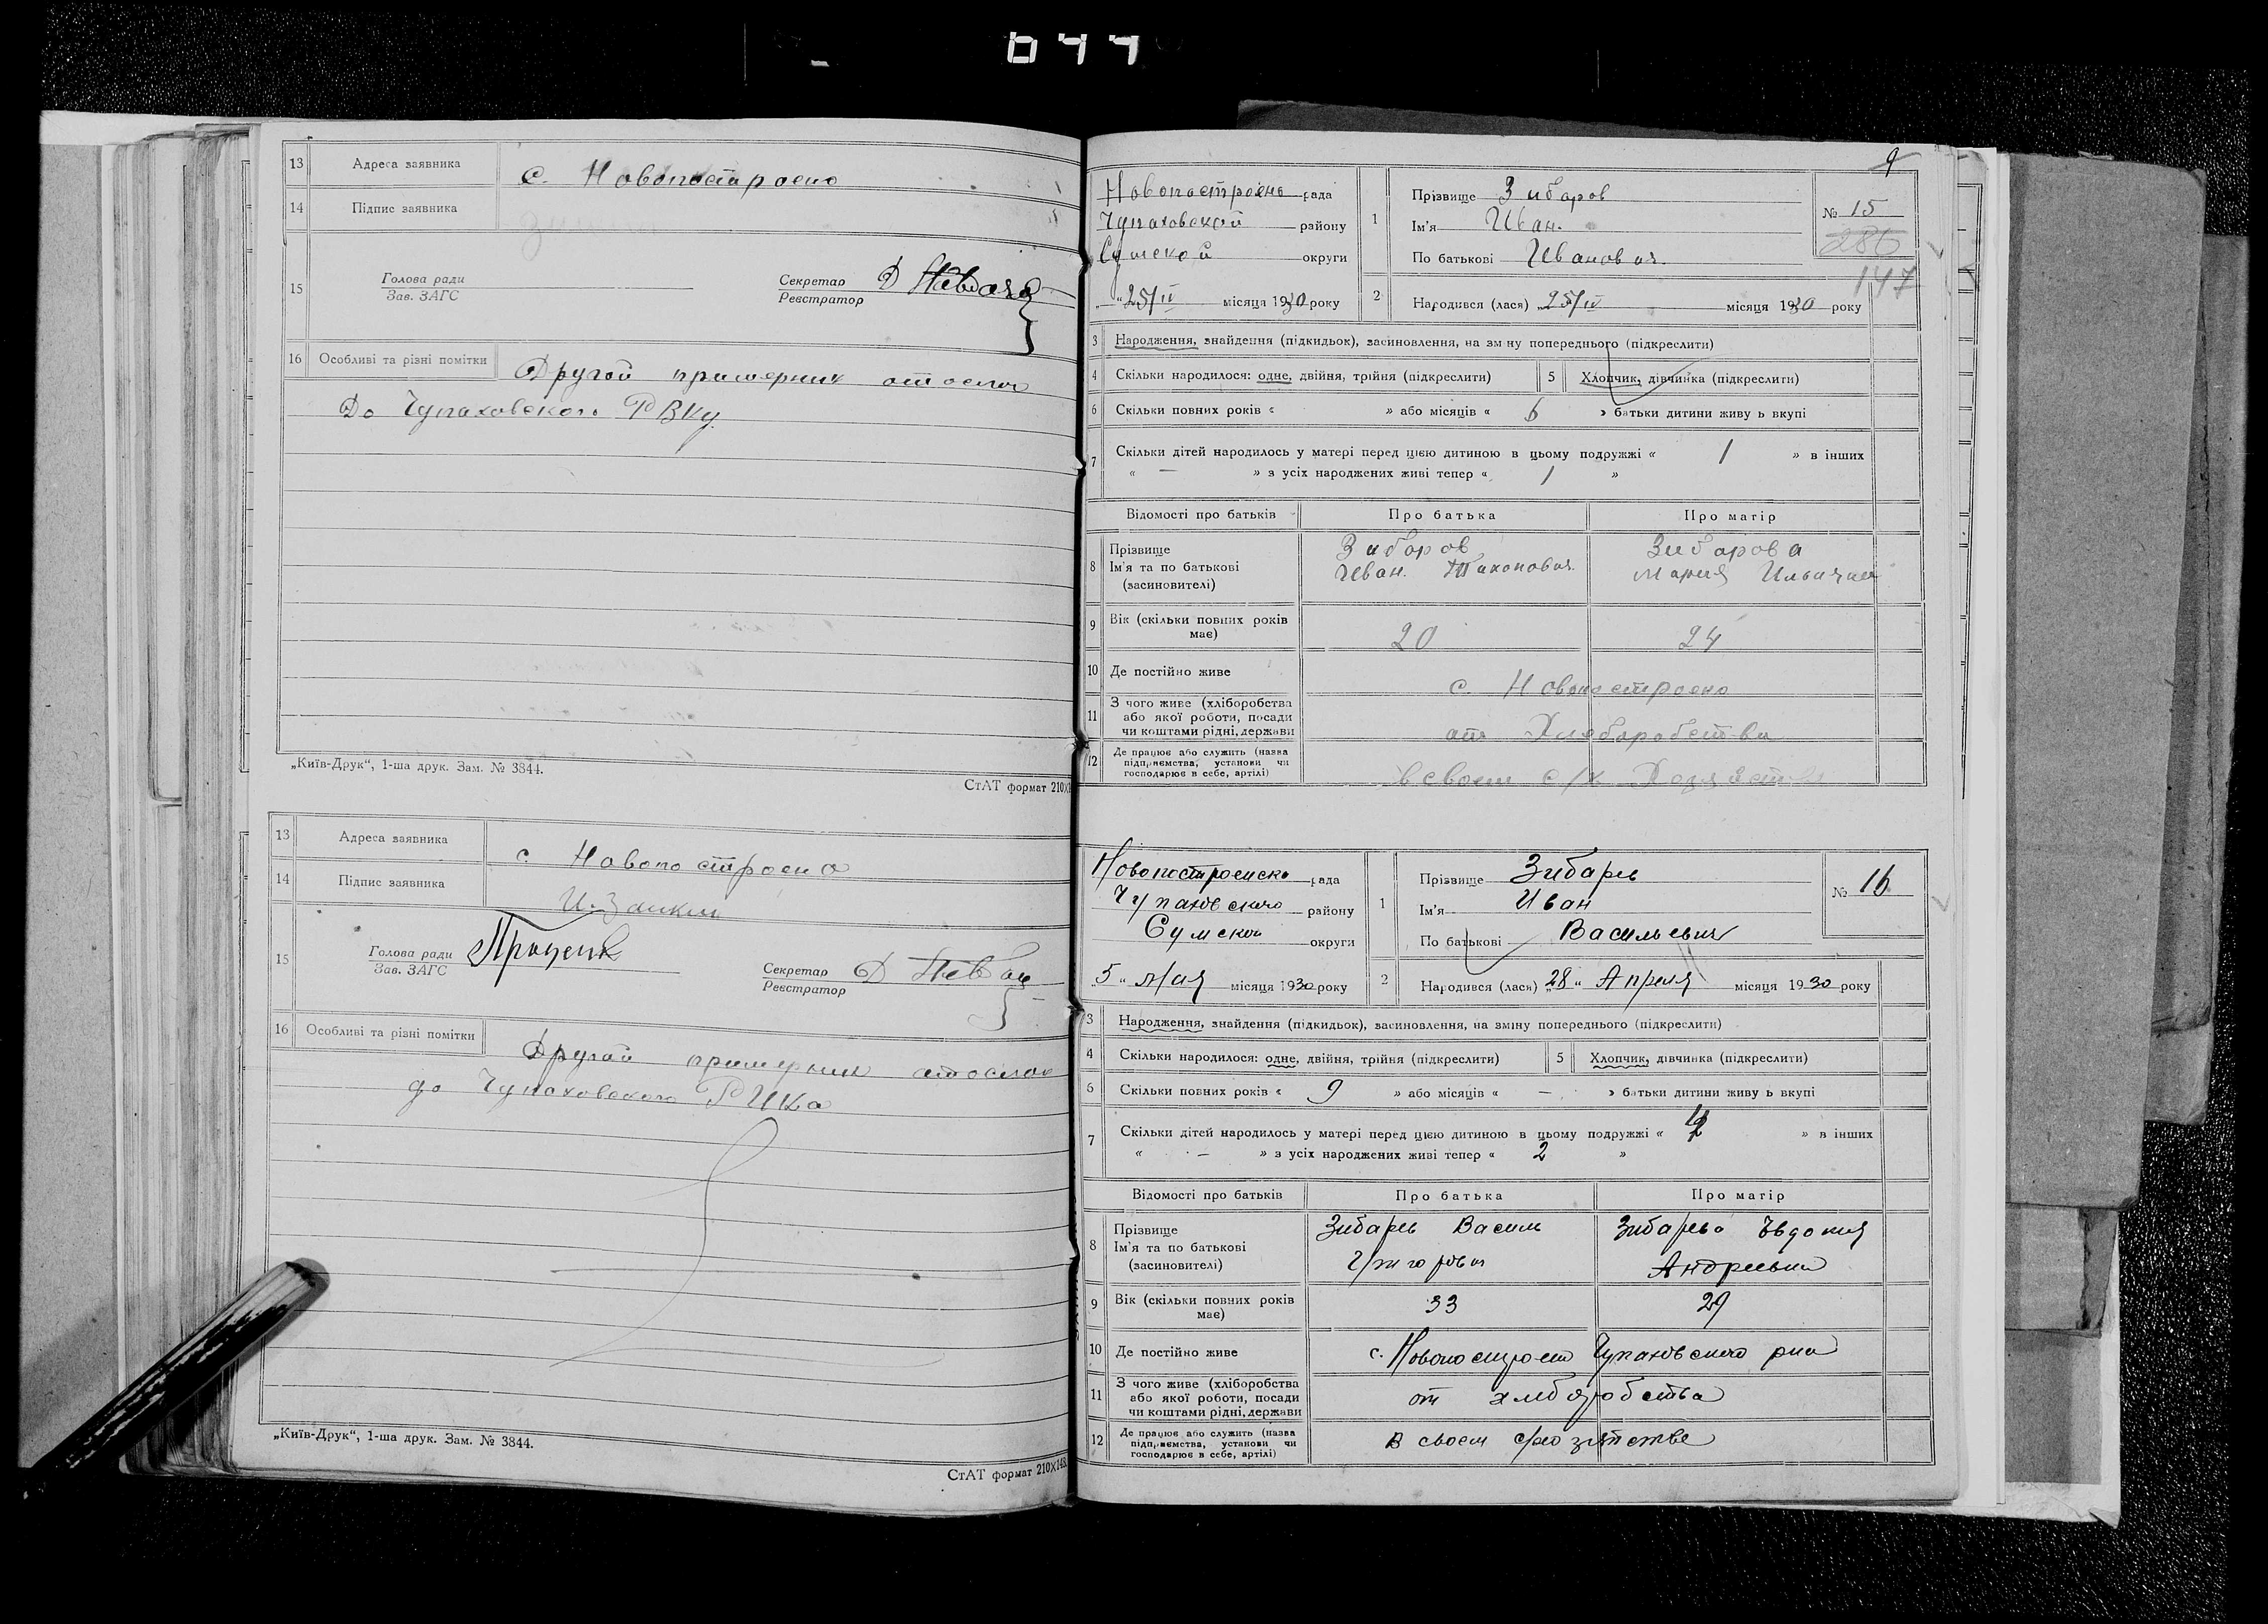 044
13 Адреса заявника с. Новопостроено
14 Підпис заявника
15 Голова ради
Зав. ЗАГС
Секретар Д
Реєстратор
16 Особливі та різні помітки Другой примерник отослан
До Чупаховского РВКу
„Київ-Друк“, 1-ша друк. Зам. № 3844.
СтАТ формат 210X1
13 Адреса заявника с Новопостроено
14 Підпис заявника
15 Голова ради
Зав. ЗАГС
Секретар Д
Реєстратор
16 Особливі та різні помітки Другой примерник отослан
до Чупаховского РИКа
„Київ-Друк“, 1-ша друк. Зам. № 3844.
СтАТ формат 210X148.
9
Новопостроено рада
Чупаховской району
Сумской округи
„25/IV місяця 1930 року
1 Прізвище Зибаров
Ім'я Иван.
По батькові Иванович.
№ 15
286
147
2 Народився (лася) „25/IV місяця 1930 року
3 Народження, знайдення (підкидьок), засиновлення, на зміну попереднього (підкреслити)
4 Скільки народилося: одне, двійня, трійня (підкреслити) 5 Хлопчик, дівчинка (підкреслити)
6 Скільки повних років « » або місяців « 6 » батьки дитини живуть вкупі
7 Скільки дітей народилось у матері перед цією дитиною в цьому подружжі « 1 » в інших
« — » з усіх народжених живі тепер « 1 »
Відомості про батьків Про батька Про матір
8 Прізвище
Ім'я та по батькові
(засиновителі)
Зибаров
Иван.
Зибарова
Мария Ильична
9 Вік (скільки повних років
має)
20 24
10 Де постійно живе с. Новопостроено
11 З чого живе (хліборобства
або якої роботи, посади
чи коштами рідні, держави
от Хлеборобства
12 Де працює або служить (назва
підприємства, установи чи
господарює в себе, артілі)
в своем с/х Хозяйстве
Новопостроенска рада
Чупаховского району
Сумской округи
„5“ мая місяця 1930 року
1 Прізвище Зибарев
Ім'я Иван
По батькові Васильевич
№ 16
2 Народився (лася) „28“ Апреля місяця 1930 року
3 Народження, знайдення (підкидьок), засиновлення, на зміну попереднього (підкреслити)
4 Скільки народилося: одне, двійня, трійня (підкреслити) 5 Хлопчик, дівчинка (підкреслити)
6 Скільки повних років « 9 » або місяців « — » батьки дитини живуть вкупі
7 Скільки дітей народилось у матері перед цією дитиною в цьому подружжі « » в інших
« — » з усіх народжених живі тепер « 2 »
Відомості про батьків Про батька Про матір
8 Прізвище
Ім'я та по батькові
(засиновителі)
Зибарев Василь
Зибарева Евдокия
Андреевна
9 Вік (скільки повних років
має)
33 29
10 Де постійно живе с. Новопостроено Чупаховского рна
11 З чого живе (хліборобства
або якої роботи, посади
чи коштами рідні, держави
от хлеборобства
12 Де працює або служить (назва
підприємства, установи чи
господарює в себе, артілі)
В своем с/хозяйстве